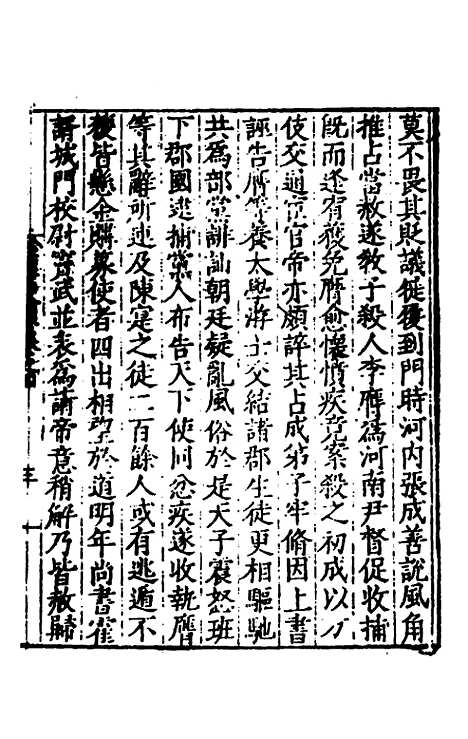 莫不畏其貶議屣履到門時河內張成善說風角
推占當赦遂教子殺人李膺爲河南尹督促收捕
旣而逢宥獲免膺愈懷憤疾竟案殺之初成以方
伎交通宦官帝亦頗誶其占成弟子牢脩因上書
誣告膺等養太學游士交結諸郡生徒更相驅馳
共爲部黨誹訕朝廷疑亂風俗於是天子震怒班
下郡國逮捕黨人布告天下使同忿疾遂收執膺
等其辭所連及陳寔之徒二百餘人或有逃遁不
獲皆懸金購募使者四出相望於道明年尚書霍
諝城門校尉竇武並表爲請帝意稍解乃皆赦歸